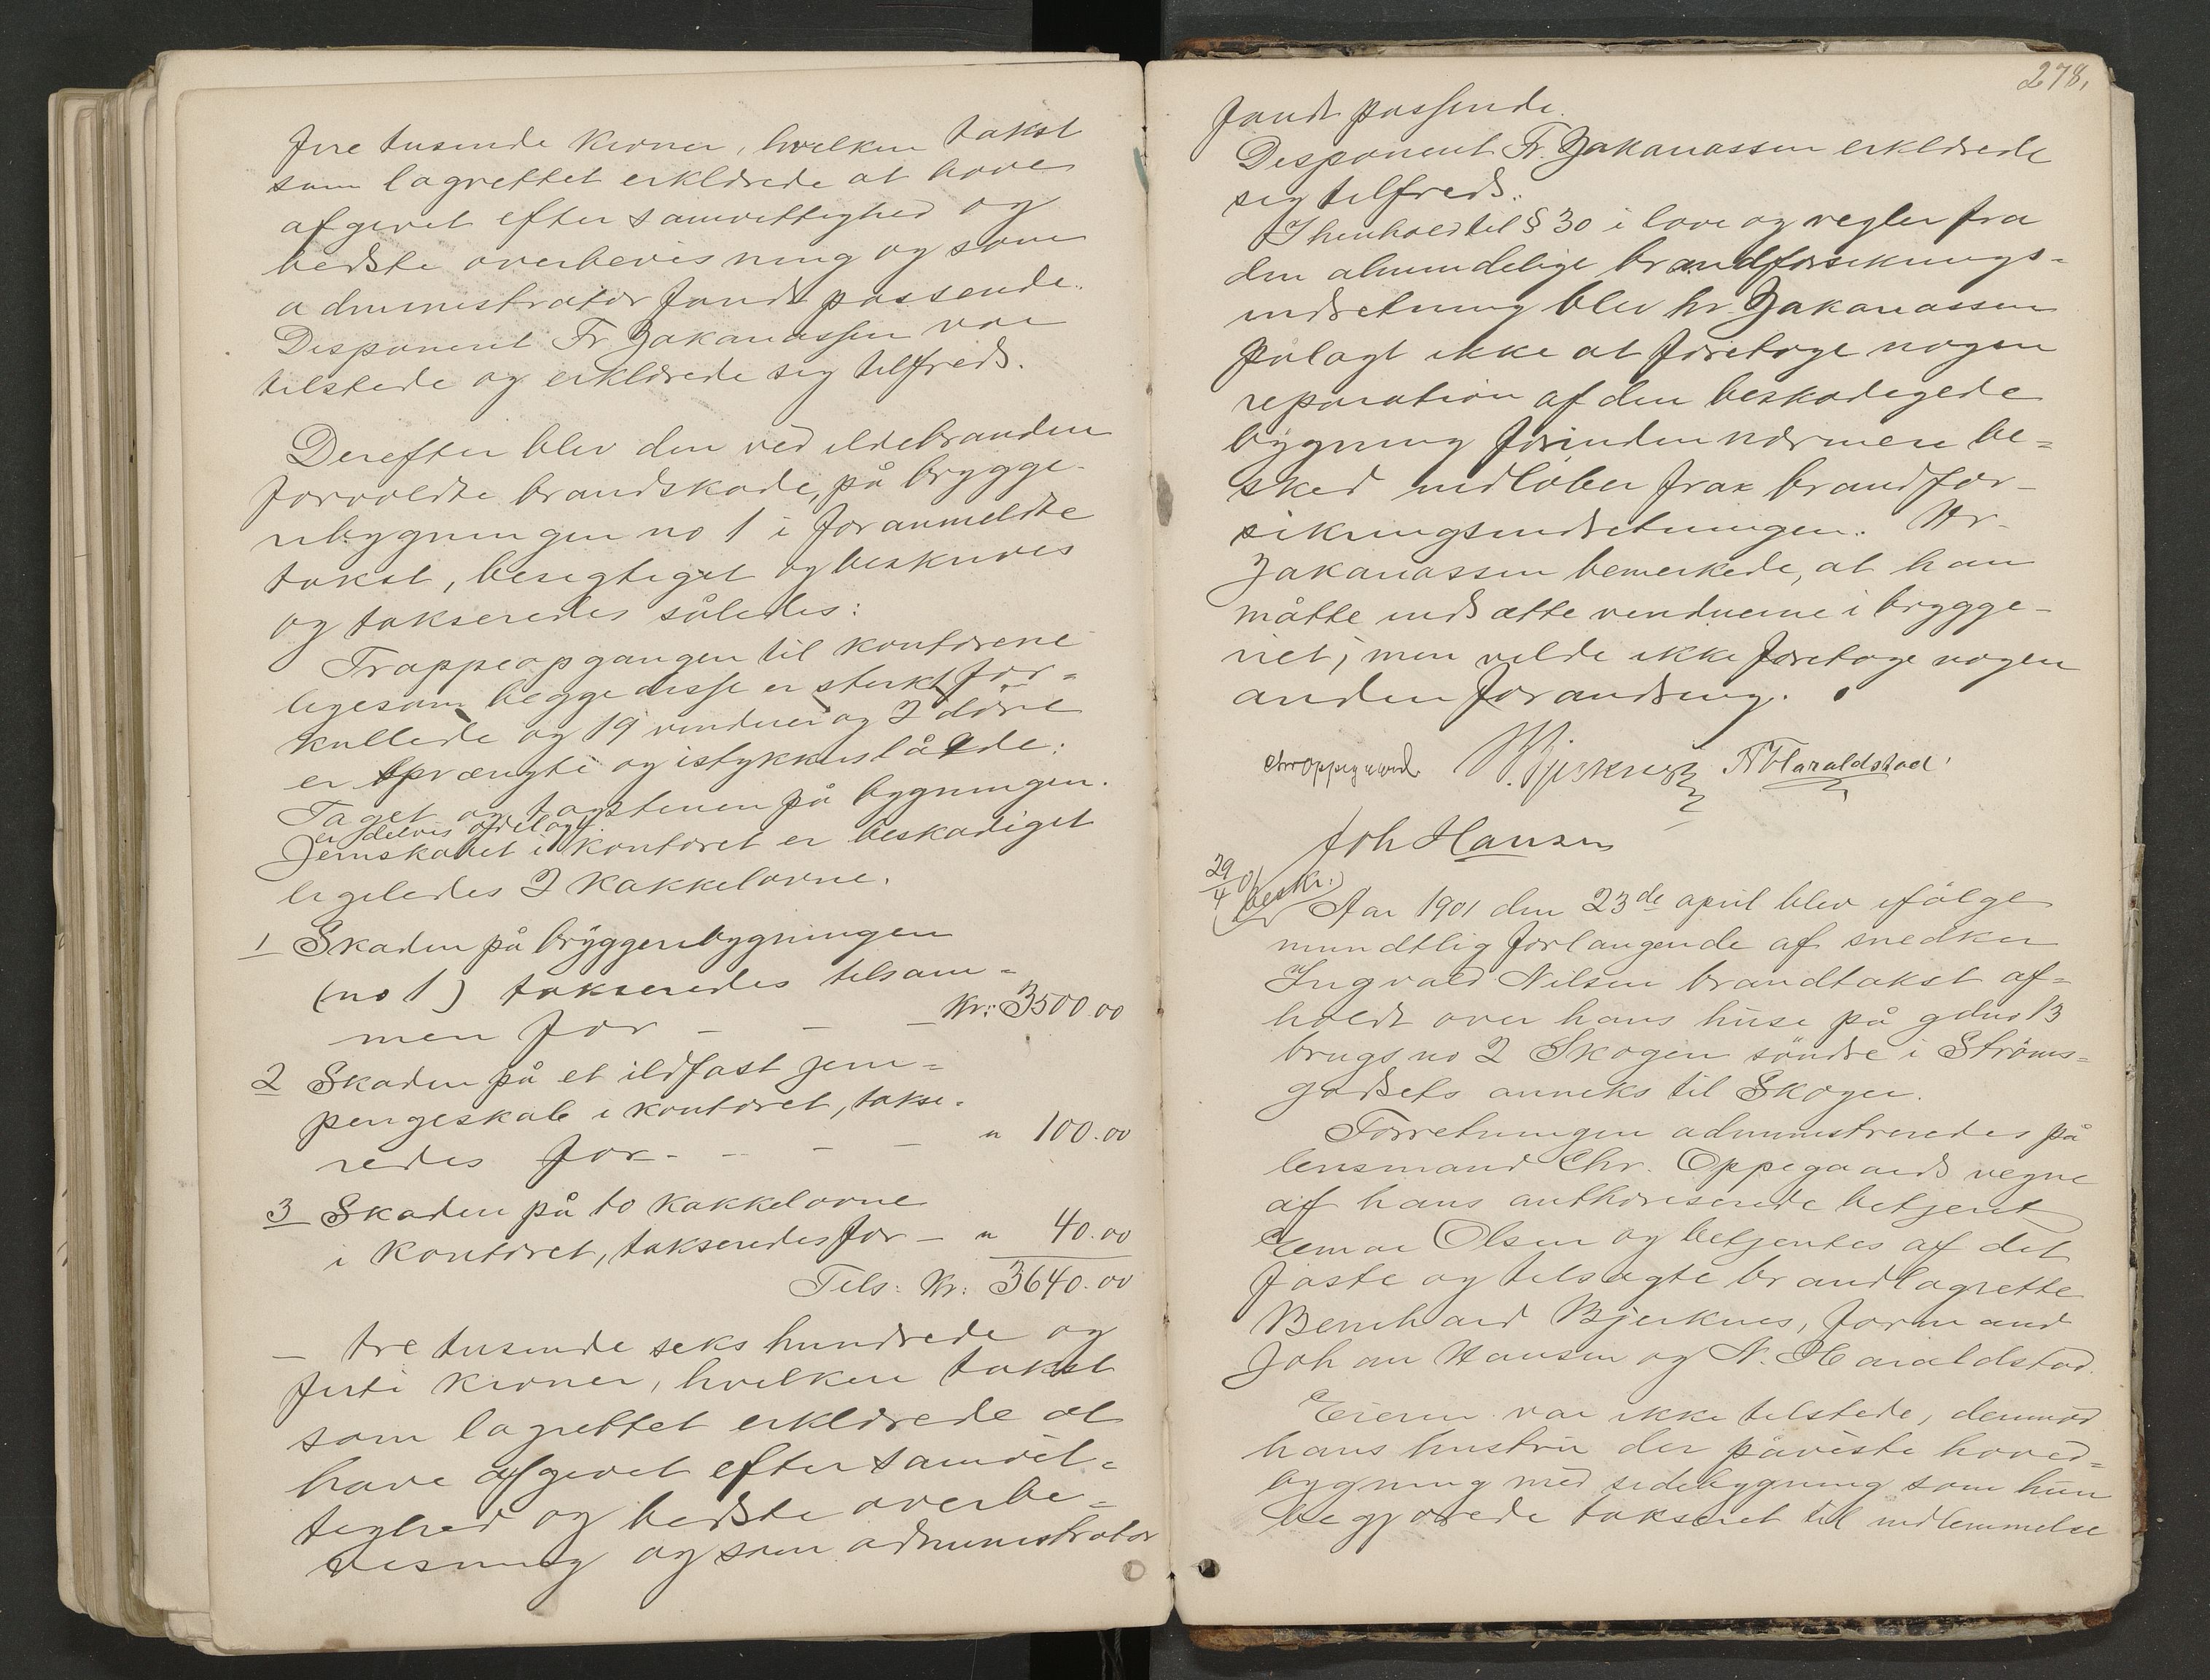 fire tusende kroner, hvilken takst
som lagrettet erklærede at have
afgivet efter samvittighed og
bedste overbevisning og som
administrator fandt passende.
Disponent Fr. Zakariassen var
tilstede og erklærede sig tilfreds.
Derefter blev den ved ildebranden
forvoldte brandskade, på brygge-
ribygningen no 1 i foranmeldte
takst, besigtiget og beskrives
og takseredes således:
Trappeopgangen til kontorene
ligesom begge disse er sterkt for-
kullede og 19 vinduer og 2 döre
er sprængte og istykkerslåede:
Taget og tagstenen på bygningen
er delvis ödelagt.
Jernskabet i kontoret er beskadiget
ligeledes 2 kakkelovne.
1 Skaden på bryggeribygningen
(no 1) takseredes tilsam-
men for - - - Kr: 3500.00
2 Skaden på et ildfast jern-
pengeskab i kontoret, takse-
redes for - - - " 100.00
3 Skaden på to kakkelovne
i kontoret, takseredes for - " 40.00
Tils: Kr: 3640.00
- tre tusende seks hundrede og
firti kroner, hvilken takst
som lagrettet erklærede at
have afgivet efter samvit-
tighed og bedste overbe-
visning og som administrator
278,
fandt passende.
Disponent Fr. Zakariassen erklærede
sig tilfreds.
I henhold til § 30 i love og regler fra
den almindelige brandforsikrings-
indretning blev hr. Zakariassen
pålagt ikke at foretage nogen
reparation af den beskadigede
bygning forinden nærmere be-
sked indlöber fra brandfor-
sikringsindretningen. Hr.
Zakariassen bemerkede, at han
måtte indsætte vinduerne i brygge-
riet, men vilde ikke foretage nogen
anden forandring.
Chr Oppegaard B. Bjerknes N Haraldstad
Joh Hansen
29/4 01
beskr.
Aar 1901 den 23de april blev ifölge
mundtlig forlangende af snedker
Ingvald Nilsen brandtakst af-
holdt over hans huse på gdno 13
brugsno 2 Skogen söndre i Ströms-
godsets anneks til Skoger.
Forretningen administreredes på
lensmand Chr. Oppegaards vegne
af hans authoriserede betjent
Einar Olsen og betjentes af det
faste og tilsagte brandlagrette
Bernhard Bjerknes, formand
Johan Hansen og N. Haraldstad.
Eieren var ikke tilstede, derimod
hans hustru der påviste hoved-
bygning med sidebygning som hun
begjærede takseret til indlemmelse